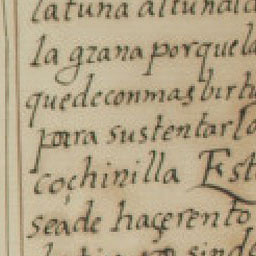 la tuna al tunal d
la grana porque la
que de con mas birtu
para sustentar la
coçhinilla Est
sea de haçer en to